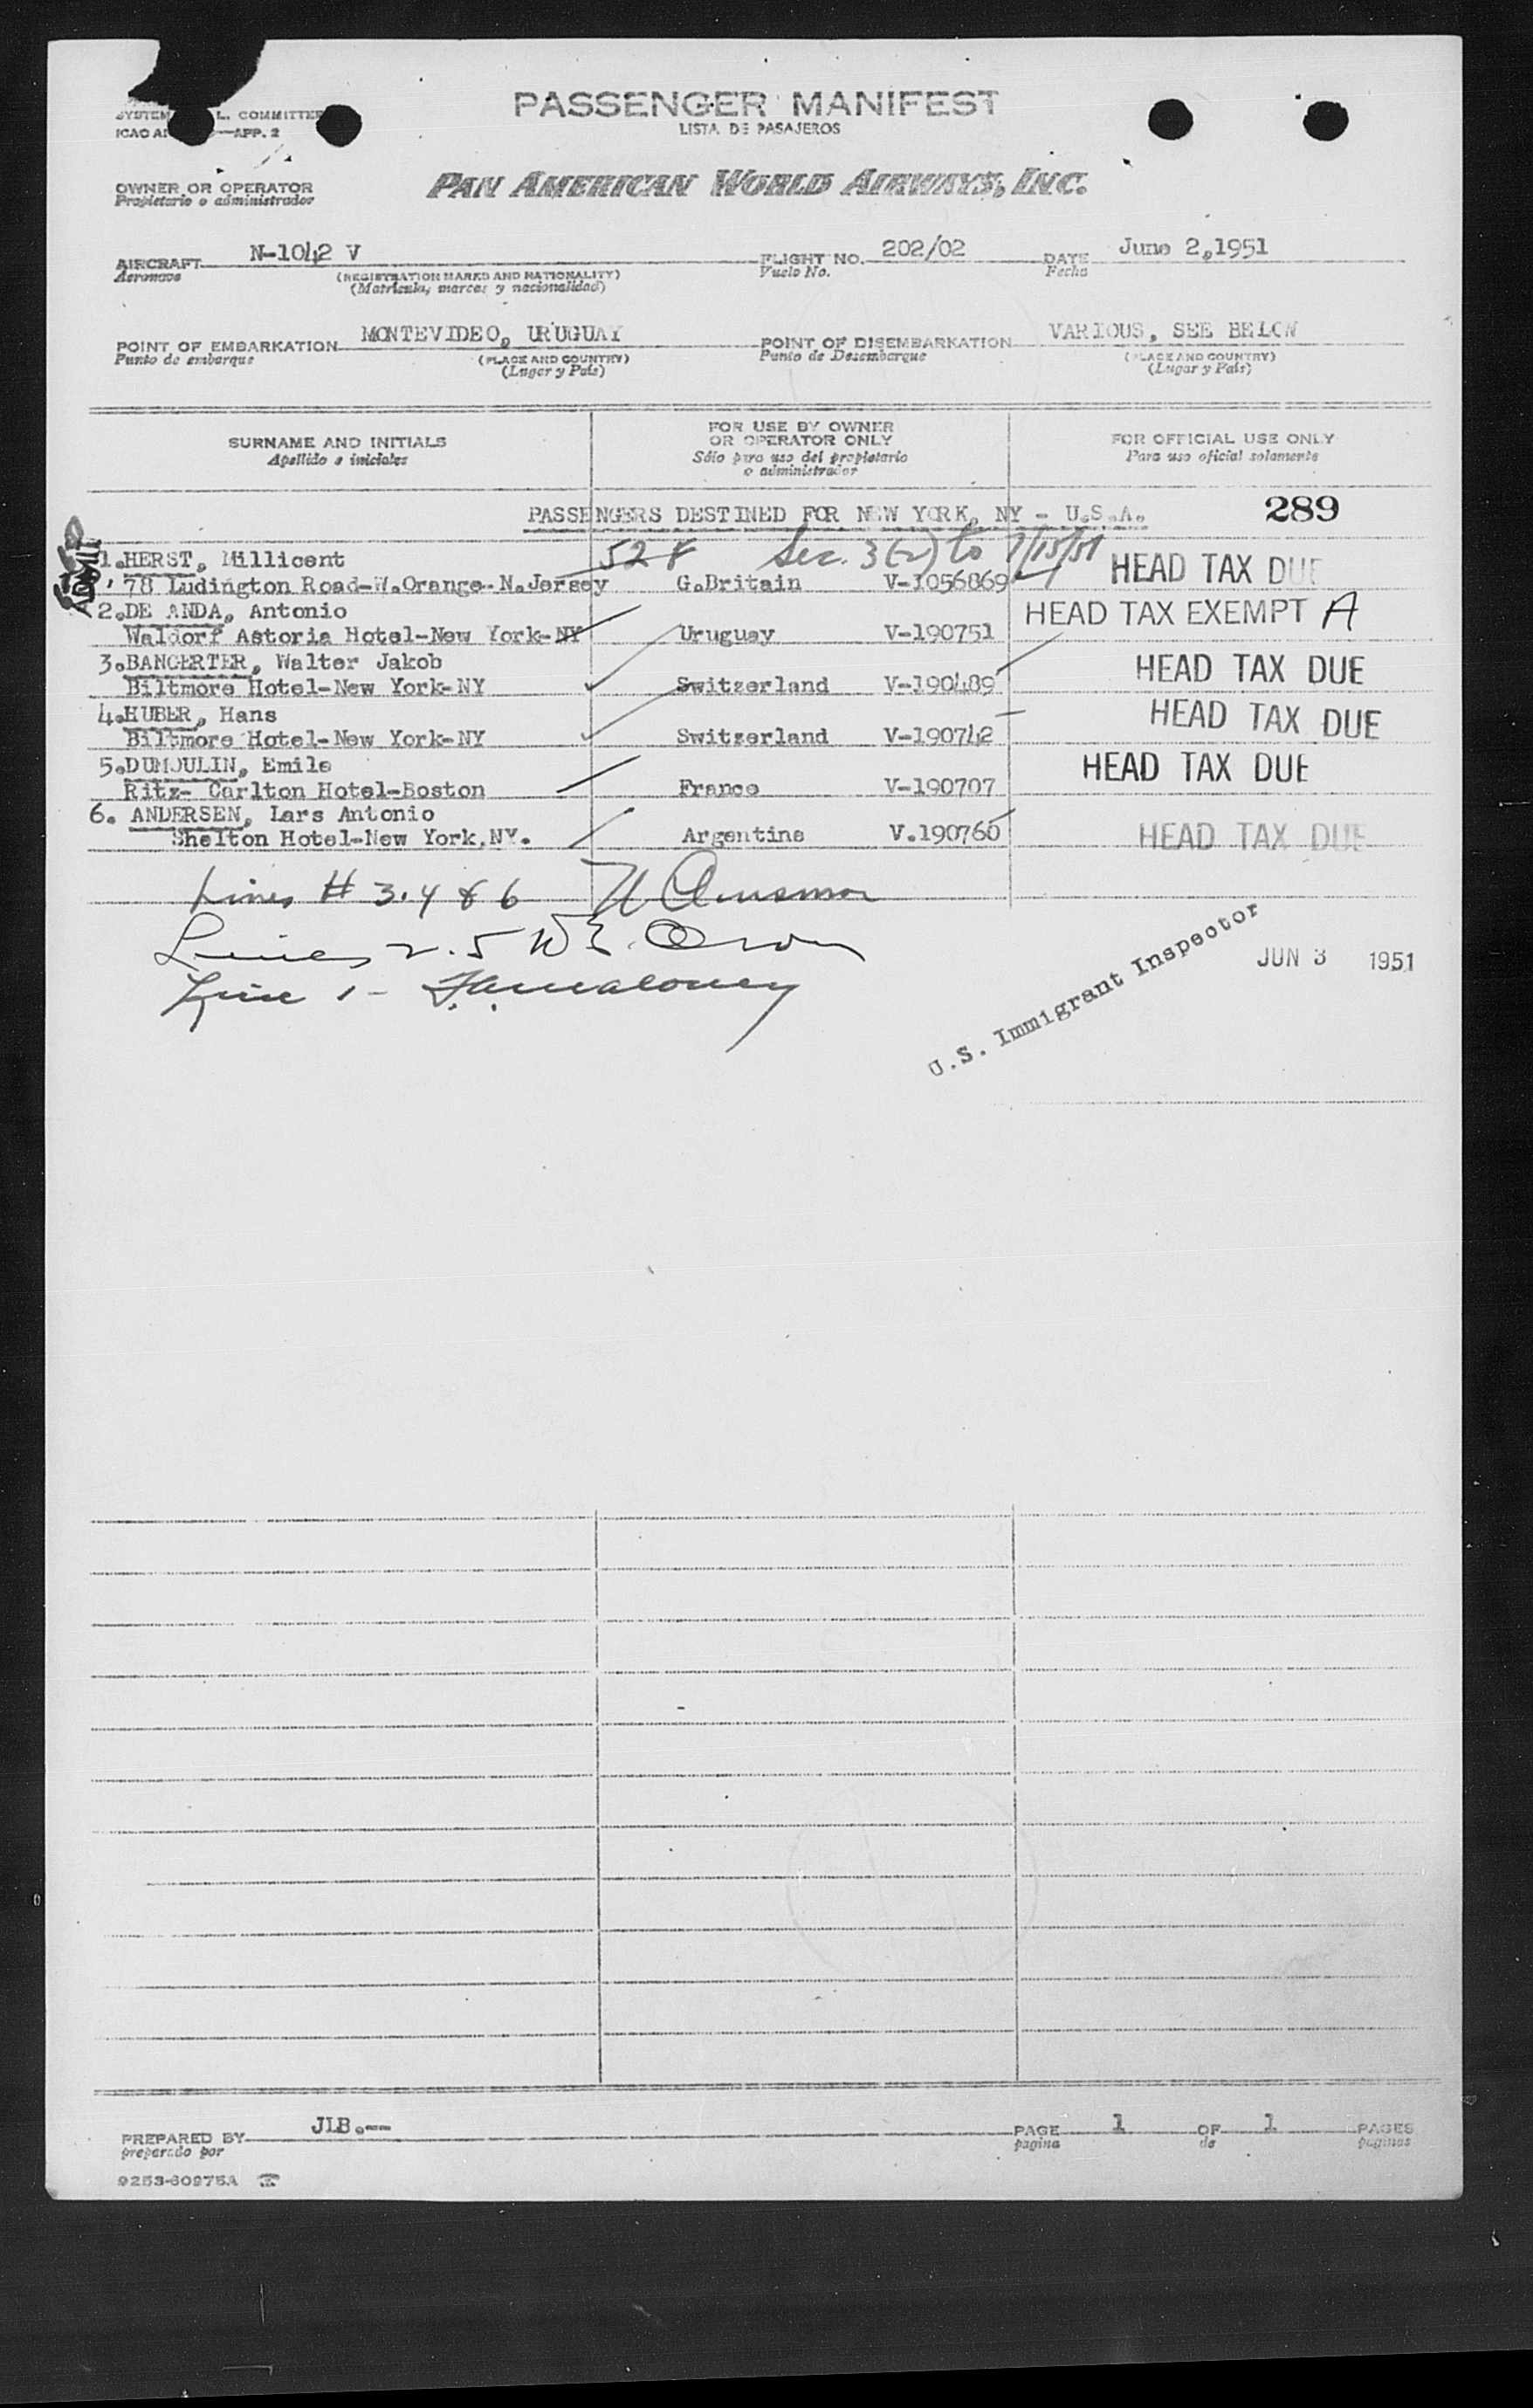 PASSENGER MANIFEST
LISTA DE PASAJEROS
SYSTEM L. COMMITTEE
ICAO —APP. 2
OWNER OR OPERATOR
Propietario o administrador
PAN AMERICAN WORLD AIRWAYS, INC.
AIRCRAFT N-1042 V FLIGHT NO. 202/02 DATE June 2,1951
Aeronave (REGISTRATION MARKS AND NATIONALITY) Vuelo No. Fecha
(Matricula, marcas y nacionalidad)
POINT OF EMBARKATION MONTEVIDEO, URUGUAY POINT OF DISEMBARKATION VARIOUS, SEE BELOW
Punto de embarque (PLACE AND COUNTRY) Punto de Desembarque (PLACE AND COUNTRY)
(Lugar y País) (Lugar y País)
SURNAME AND INITIALS FOR USE BY OWNER OR OPERATOR ONLY FOR OFFICIAL USE ONLY
Apellido e iniciales Sólo para uso del propietario o administrador Para uso oficial solamente
PASSENGERS DESTINED FOR NEW YORK, NY - U.S.A. 289
ADMIT
1.HERST, Millicent 528 Sec. 3(2) to 7/15/51 HEAD TAX DUE
78 Ludington Road-W.Orange-N.Jersey G.Britain V-1056869
2.DE ANDA, Antonio HEAD TAX EXEMPT A
Waldorf Astoria Hotel-New York-NY Uruguay V-190751
3.BANGERTER, Walter Jakob HEAD TAX DUE
Biltmore Hotel-New York-NY Switzerland V-190489
4.HUBER, Hans HEAD TAX DUE
Biltmore Hotel-New York-NY Switzerland V-190742
5.DUMOULIN, Emile HEAD TAX DUE
Ritz- Carlton Hotel-Boston France V-190707
6. ANDERSEN, Lars Antonio
Shelton Hotel-New York,NY. Argentina V.190760 HEAD TAX DUE
Lines # 3.4 & 6
Lines 2.5 W E.
Line 1 - Maloney
U.S. Immigrant Inspector
JUN 3 1951
PREPARED BY JLB.-- PAGE 1 OF 1 PAGES
preparado por pagina de paginas
9253-60975A